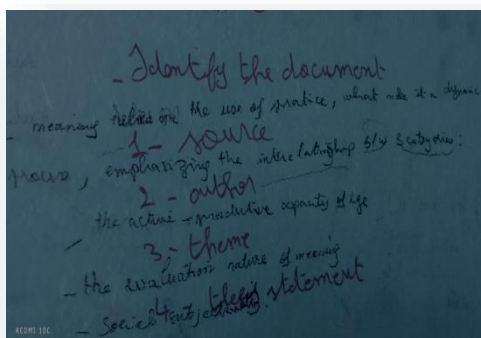 - Identify the document
- meaning relies on the use of practice, what make it a dynamic
1 - source
process, emphasizing the interelationship b/w 3 categories:
2 - author
the active - productive capacity of life
3 - theme
- the evaluation nature of meaning
4 - thesis statement
- social
REDMI 10C